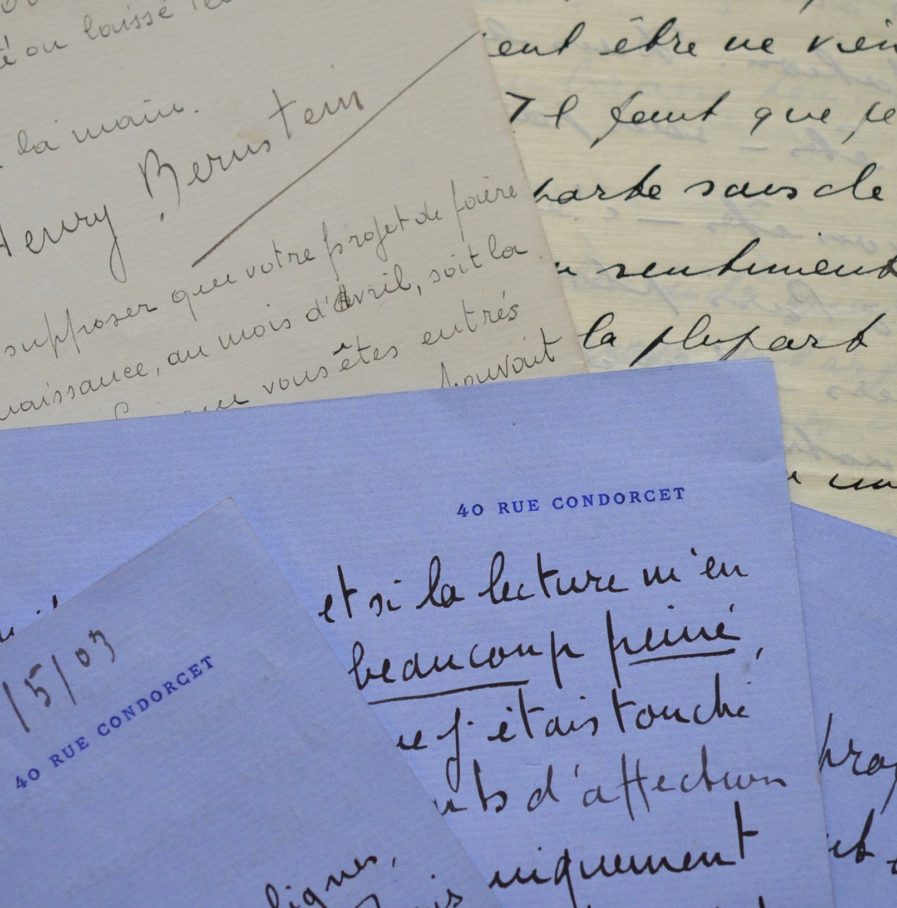 ou laissé
la main.
Henry Bernstein
supposer que votre projet de foière
naissance, au mois d'Avril, soit la
que vous êtes entrés
pouvait
ent être ne vien
Il faut que je
parte sans de
sentiment
la plupart
40 RUE CONDORCET
et si la lecture m'en
beaucoup peiné,
ue j'étais touché
d'affection
uniquement
/5/03
40 RUE CONDORCET
lignes,